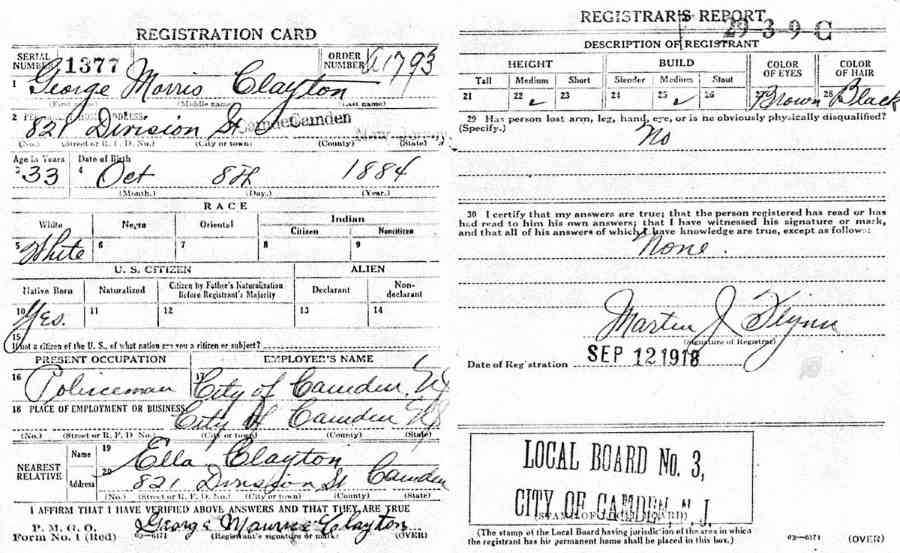 REGISTRATION CARD
SERIAL NUMBER 1377 ORDER NUMBER A1793
1 George Morris Clayton
(First name) (Middle name) (Last name)
2 PERMANENT HOME ADDRESS:
821 Division St Camden Camden
(No.) (Street or R. F. D. No.) (City or town) (County) (State)
Age in Years Date of Birth
3 33 4 Oct 8th 1884
(Month.) (Day.) (Year.)
RACE
White Negro Oriental Indian
Citizen Noncitizen
5 White 6 7 8 9
U. S. CITIZEN ALIEN
Native Born Naturalized Citizen by Father's Naturalization Before Registrant's Majority Declarant Non-declarant
10 Yes. 11 12 13 14
15
If not a citizen of the U. S., of what nation are you a citizen or subject?
PRESENT OCCUPATION EMPLOYER'S NAME
16 Policeman 17 City of Camden, NJ
18 PLACE OF EMPLOYMENT OR BUSINESS:
City of Camden NJ
(No.) (Street or R. F. D. No.) (City or town) (County) (State)
NEAREST RELATIVE
Name 19 Ella Clayton
Address 20 821 Division St Camden
(No.) (Street or R. F. D. No.) (City or town) (County) (State)
I AFFIRM THAT I HAVE VERIFIED ABOVE ANSWERS AND THAT THEY ARE TRUE
P. M. G. O.
Form No. 1 (Red) 03—6171 George Maurice Clayton
(Registrant's signature or mark) (OVER)
REGISTRAR'S REPORT
29-3-9-C
DESCRIPTION OF REGISTRANT
HEIGHT BUILD COLOR OF EYES COLOR OF HAIR
Tall Medium Short Slender Medium Stout
21 22 ✓ 23 24 25 ✓ 26 27 Brown 28 Black
29 Has person lost arm, leg, hand, eye, or is he obviously physically disqualified?
(Specify.) No
30 I certify that my answers are true; that the person registered has read or has
had read to him his own answers; that I have witnessed his signature or mark,
and that all of his answers of which I have knowledge are true, except as follows:
None.
Martin J Flynn
(Signature of Registrar)
Date of Registration SEP 12 1918
LOCAL BOARD No. 3,
CITY OF CAMDEN, N. J.
(STAMP OF LOCAL BOARD)
(The stamp of the Local Board having jurisdiction of the area in which
the registrant has his permanent home shall be placed in this box.)
03—6171 (OVER)